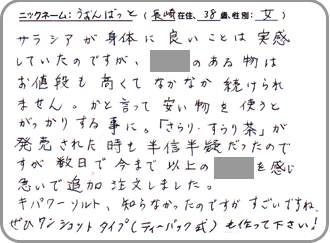 ニックネーム:うおんばっと (長崎在住、38歳、性別: 女)
サラシアが身体に良いことは実感
していたのですが、 のある物は
お値段も高くてなかなか続けられ
ません。かと言って安い物を使うと
がっかりする事に。「さらり・すらり茶」が
発売された時も半信半疑だったので
すが数日で今まで以上の を感じ
急いで追加注文しました。
キパワーソルト、知らなかったのですがすごいですね。
ぜひワンショットタイプ(ティーバック式)も作って下さい!